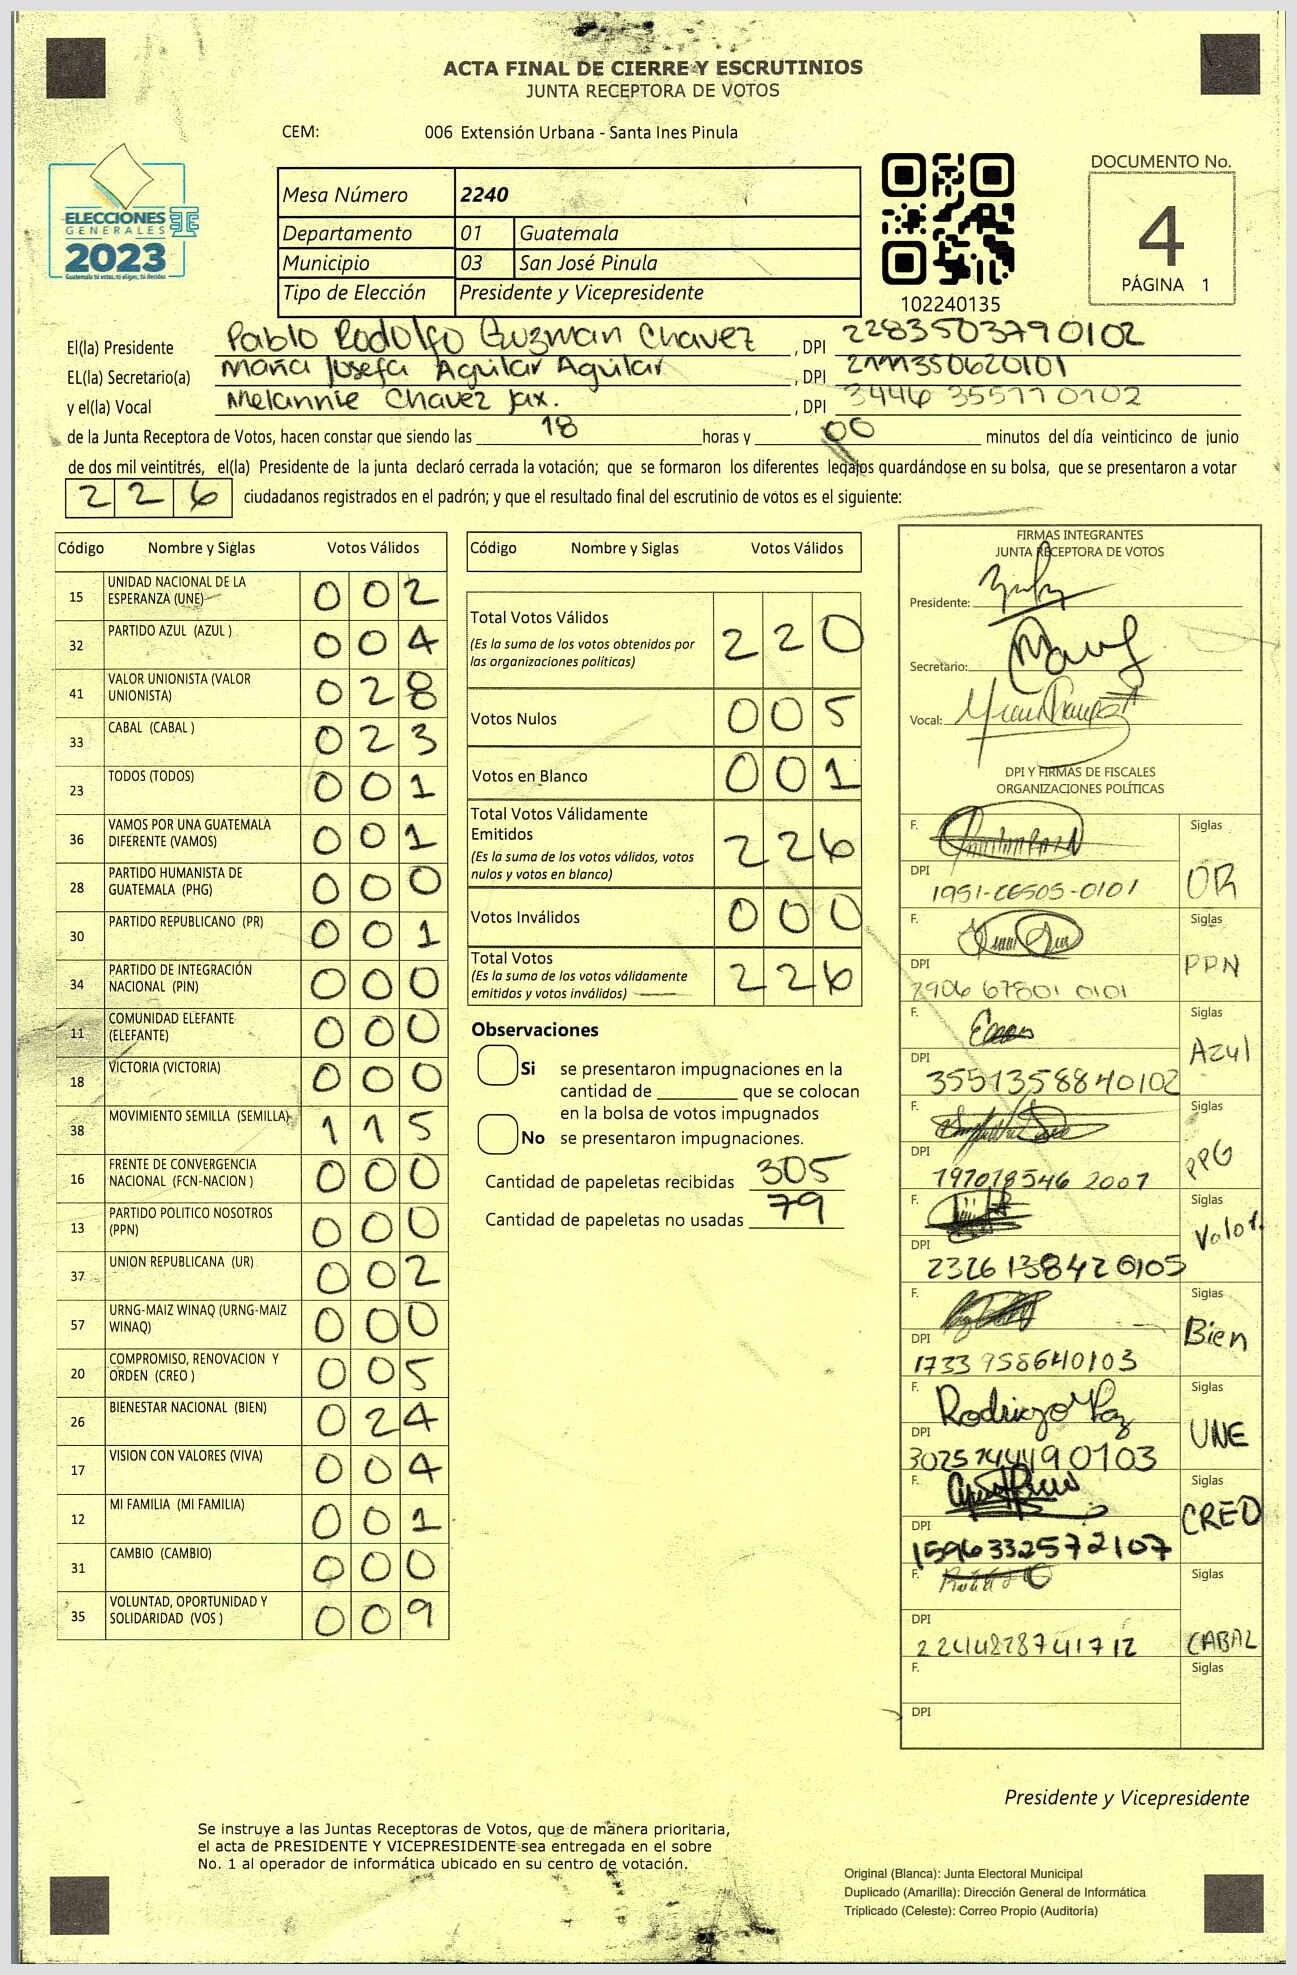 ACTA FINAL DE CIERRE Y ESCRUTINIOS
JUNTA RECEPTORA DE VOTOS
CEM: 006 Extensión Urbana - Santa Ines Pinula
ELECCIONES
GENERALES
2023
Guatemala tú votas, tú eliges, tú decides
Mesa Número 2240
Departamento 01 Guatemala
Municipio 03 San José Pinula
Tipo de Elección Presidente y Vicepresidente
102240135
DOCUMENTO No.
4
PÁGINA 1
El(la) Presidente Pablo Rodolfo Guzman Chavez , DPI 2283503790102
EL(la) Secretario(a) María Josefa Aguilar Aguilar , DPI
y el(la) Vocal Melannie Chavez Jax. , DPI
de la Junta Receptora de Votos, hacen constar que siendo las 18 horas y 00 minutos del día veinticinco de junio
de dos mil veintitrés, el(la) Presidente de la junta declaró cerrada la votación; que se formaron los diferentes legajos quardándose en su bolsa, que se presentaron a votar
226 ciudadanos registrados en el padrón; y que el resultado final del escrutinio de votos es el siguiente:
Código Nombre y Siglas Votos Válidos
15 UNIDAD NACIONAL DE LA ESPERANZA (UNE) 002
32 PARTIDO AZUL (AZUL ) 004
41 VALOR UNIONISTA (VALOR UNIONISTA) 028
33 CABAL (CABAL ) 023
23 TODOS (TODOS) 001
36 VAMOS POR UNA GUATEMALA DIFERENTE (VAMOS) 001
28 PARTIDO HUMANISTA DE GUATEMALA (PHG) 000
30 PARTIDO REPUBLICANO (PR) 001
34 PARTIDO DE INTEGRACIÓN NACIONAL (PIN) 000
11 COMUNIDAD ELEFANTE (ELEFANTE) 000
18 VICTORIA (VICTORIA) 000
38 MOVIMIENTO SEMILLA (SEMILLA) 115
16 FRENTE DE CONVERGENCIA NACIONAL (FCN-NACION ) 000
13 PARTIDO POLITICO NOSOTROS (PPN) 000
37 UNION REPUBLICANA (UR) 002
57 URNG-MAIZ WINAQ (URNG-MAIZ WINAQ) 000
20 COMPROMISO, RENOVACION Y ORDEN (CREO ) 005
26 BIENESTAR NACIONAL (BIEN) 024
17 VISION CON VALORES (VIVA) 004
12 MI FAMILIA (MI FAMILIA) 001
31 CAMBIO (CAMBIO) 000
35 VOLUNTAD, OPORTUNIDAD Y SOLIDARIDAD (VOS ) 009
Código Nombre y Siglas Votos Válidos
Total Votos Válidos 220
(Es la suma de los votos obtenidos por
las organizaciones políticas)
Votos Nulos 005
Votos en Blanco 001
Total Votos Válidamente
Emitidos 226
(Es la suma de los votos válidos, votos
nulos y votos en blanco)
Votos Inválidos 000
Total Votos 226
(Es la suma de los votos válidamente
emitidos y votos inválidos)
Observaciones
Si se presentaron impugnaciones en la
cantidad de ________ que se colocan
en la bolsa de votos impugnados
No se presentaron impugnaciones.
Cantidad de papeletas recibidas 305
Cantidad de papeletas no usadas 79
FIRMAS INTEGRANTES
JUNTA RECEPTORA DE VOTOS
Presidente:
Secretario:
Vocal:
DPI Y FIRMAS DE FISCALES
ORGANIZACIONES POLÍTICAS
F. Siglas
DPI
F. Siglas PPN
DPI 2906 67801 0101
F. Siglas Azul
DPI 3551358840102
F. Siglas PPG
DPI 197018546 2007
F. Siglas Valor.
DPI 2326138420105
F. Siglas Bien
DPI 1733 958640103
F. Rodrigo Paz Siglas UNE
DPI
F. Siglas CREO
DPI 1596332572107
F. Siglas CABAL
DPI
F. Siglas
DPI
Presidente y Vicepresidente
Se instruye a las Juntas Receptoras de Votos, que de manera prioritaria,
el acta de PRESIDENTE Y VICEPRESIDENTE sea entregada en el sobre
No. 1 al operador de informática ubicado en su centro de votación.
Original (Blanca): Junta Electoral Municipal
Duplicado (Amarilla): Dirección General de Informática
Triplicado (Celeste): Correo Propio (Auditoría)